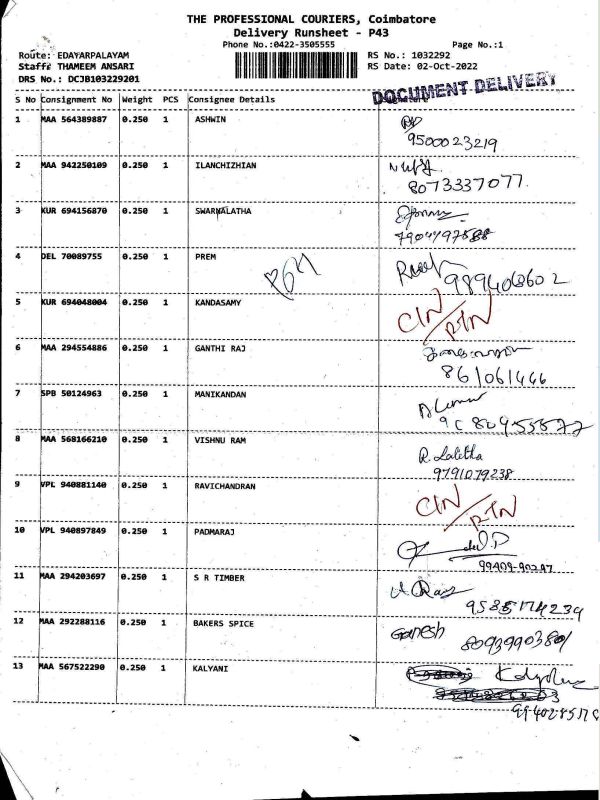 THE PROFESSIONAL COURIERS, Coimbatore
Delivery Runsheet - P43
Phone No.:0422-3505555 Page No.:1
Route: EDAYARPALAYAM RS No.: 1032292
Staff: THAMEEM ANSARI RS Date: 02-Oct-2022
DRS No.: DCJB103229201
DOCUMENT DELIVERY
S No Consignment No Weight PCS Consignee Details
1 MAA 564389887 0.250 1 ASHWIN
9500023219
2 MAA 942250109 0.250 1 ILANCHIZHIAN
8073337077.
3 KUR 694156870 0.250 1 SWARNALATHA
4 DEL 70089755 0.250 1 PREM
9894063602
5 KUR 694048004 0.250 1 KANDASAMY CIN/RTN
6 MAA 294554886 0.250 1 GANTHI RAJ
861061466
7 SPB 50124963 0.250 1 MANIKANDAN
8 MAA 568166210 0.250 1 VISHNU RAM R. Lalitha
9791079238
9 VPL 940881140 0.250 1 RAVICHANDRAN CIN/RTN
10 VPL 940897849 0.250 1 PADMARAJ
99409-90247
11 MAA 294203697 0.250 1 S R TIMBER
9585174234
12 MAA 292288116 0.250 1 BAKERS SPICE Ganesh
8093990380
13 MAA 567522290 0.250 1 KALYANI